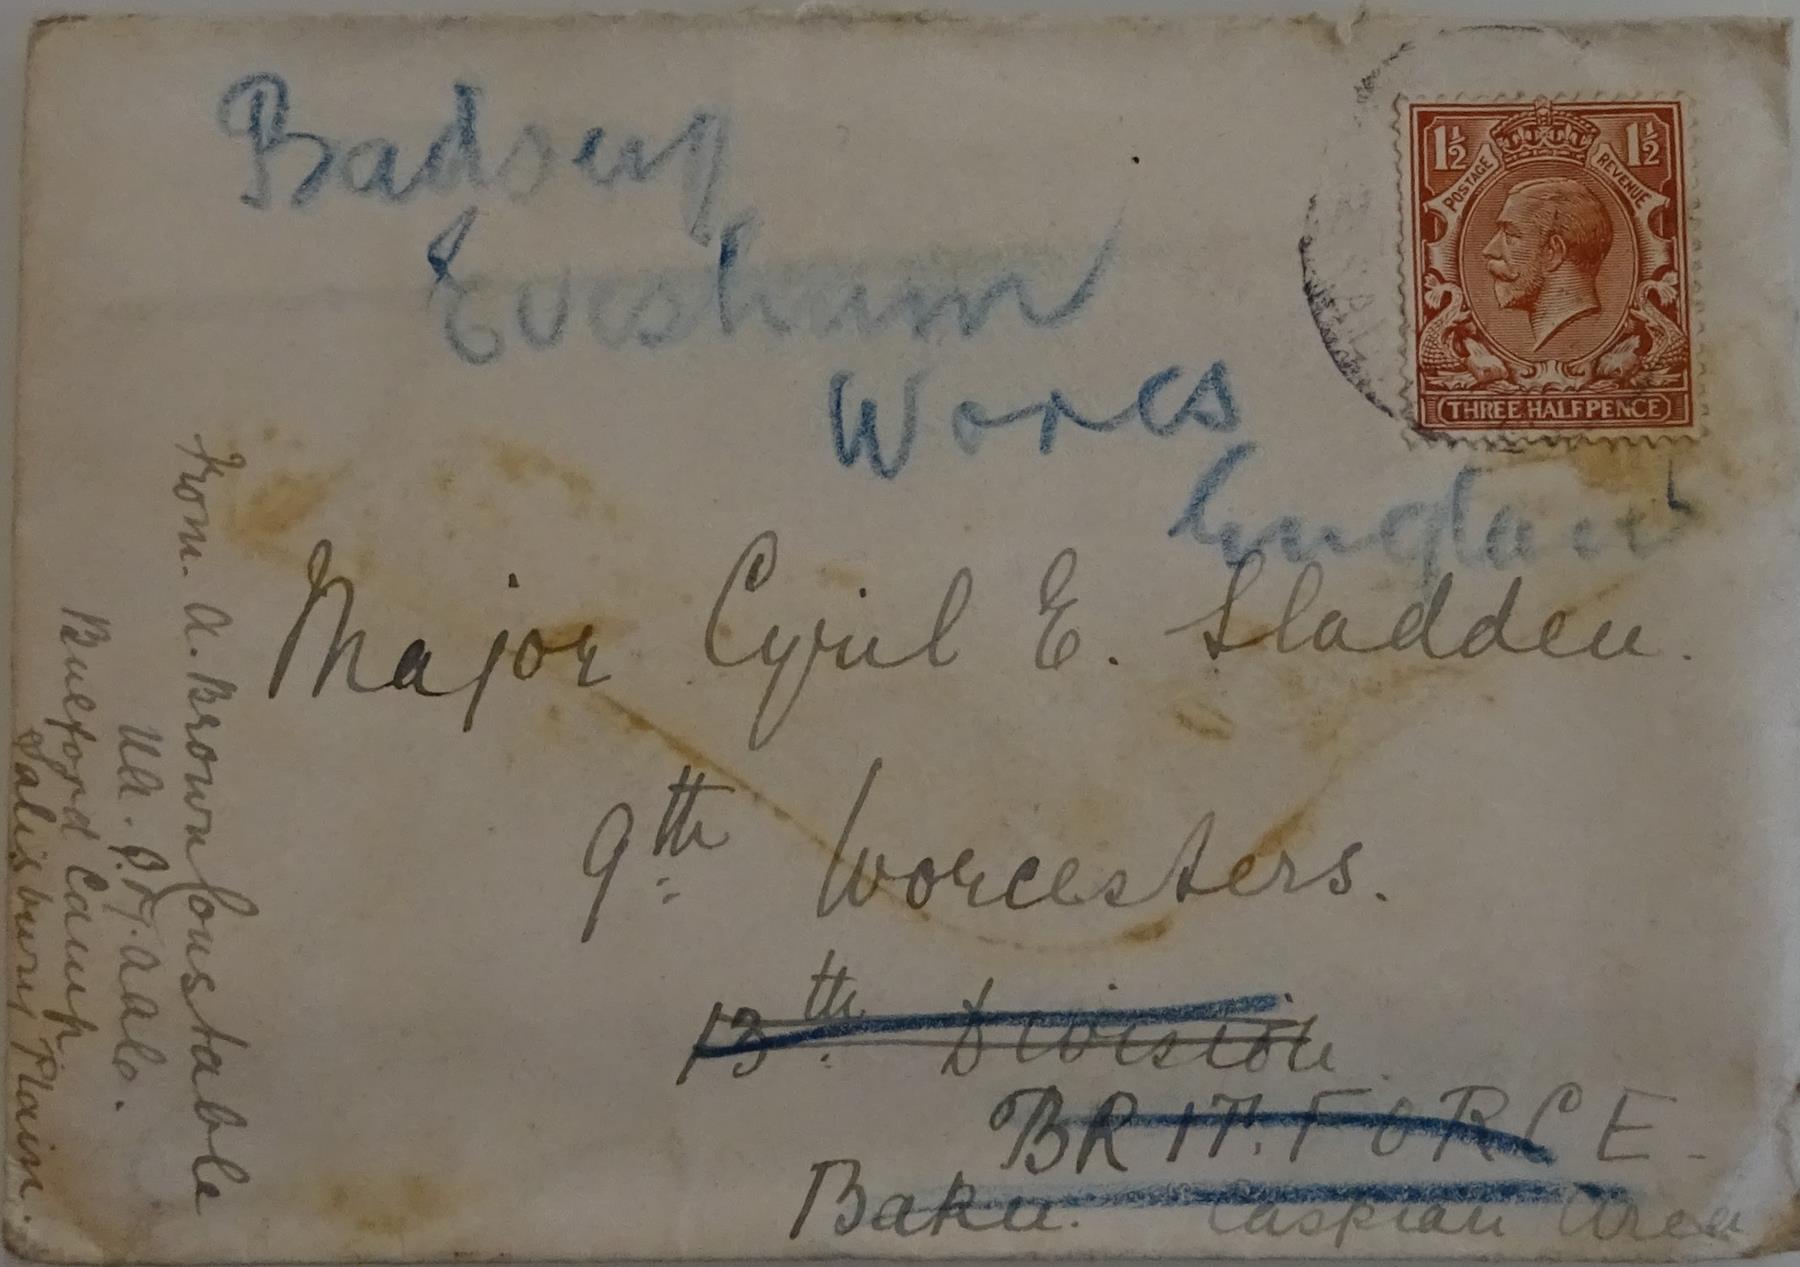 Badsey
Evesham
Worcs
England
1½ 1½
POSTAGE REVENUE
THREE HALFPENCE
Major Cyril E. Sladden.
9th Worcesters.
13th Division
BRIT. FORCE.
Baku. Caspian Area
From. A. Brown Constable
Bulford Camp
Salisbury Plain.